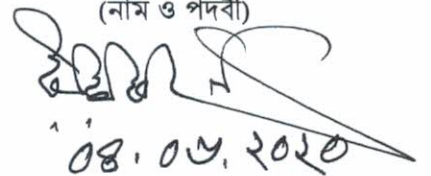 (নাম ও পদবী)
০৪. ০৬. ২০২০